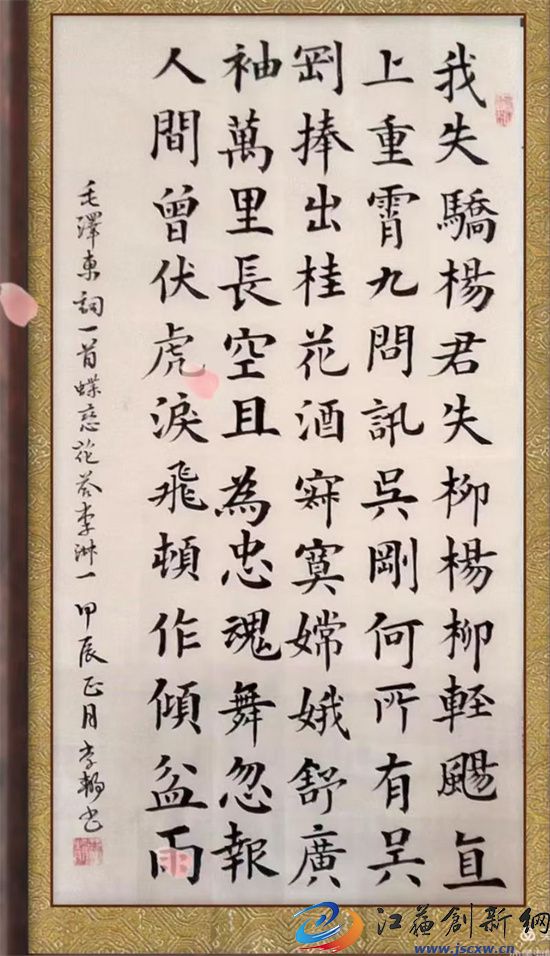 我失驕楊君失柳楊柳輕颺直
上重霄九問訊吳剛何所有吳
剛捧出桂花酒寂寞嫦娥舒廣
袖萬里長空且為忠魂舞忽報
人間曾伏虎淚飛頓作傾盆雨
毛澤東詞一首蝶恋花答李淑一甲辰正月李
江苏创新网
www.jscxw.cn